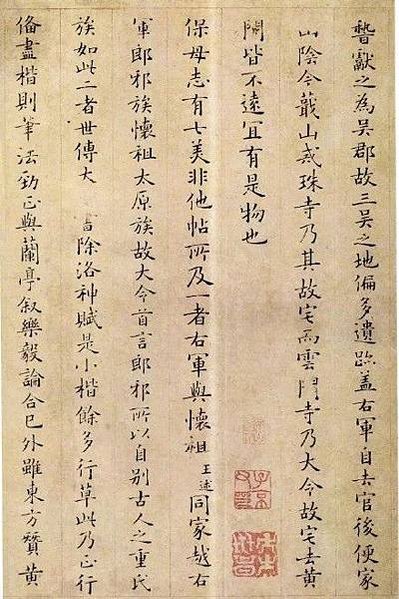 獻之為吳郡故三吳之地偏多遺跡盖右軍自去官後便家
山陰今蕺山戒珠寺乃其故宅而雲門寺乃大令故宅去黃
閍皆不遠宜有是物也
保母志有七美非他帖所及一者右軍與懷祖王述同家越右
軍郎邪族懷祖太原族故大令首言郎邪所以自別古人之重氏
族如此二者世傳大 除洛神賦是小楷餘多行草此乃正行
俻盡楷則筆法勁正與蘭亭叙樂毅論合已外雖東方贊黃